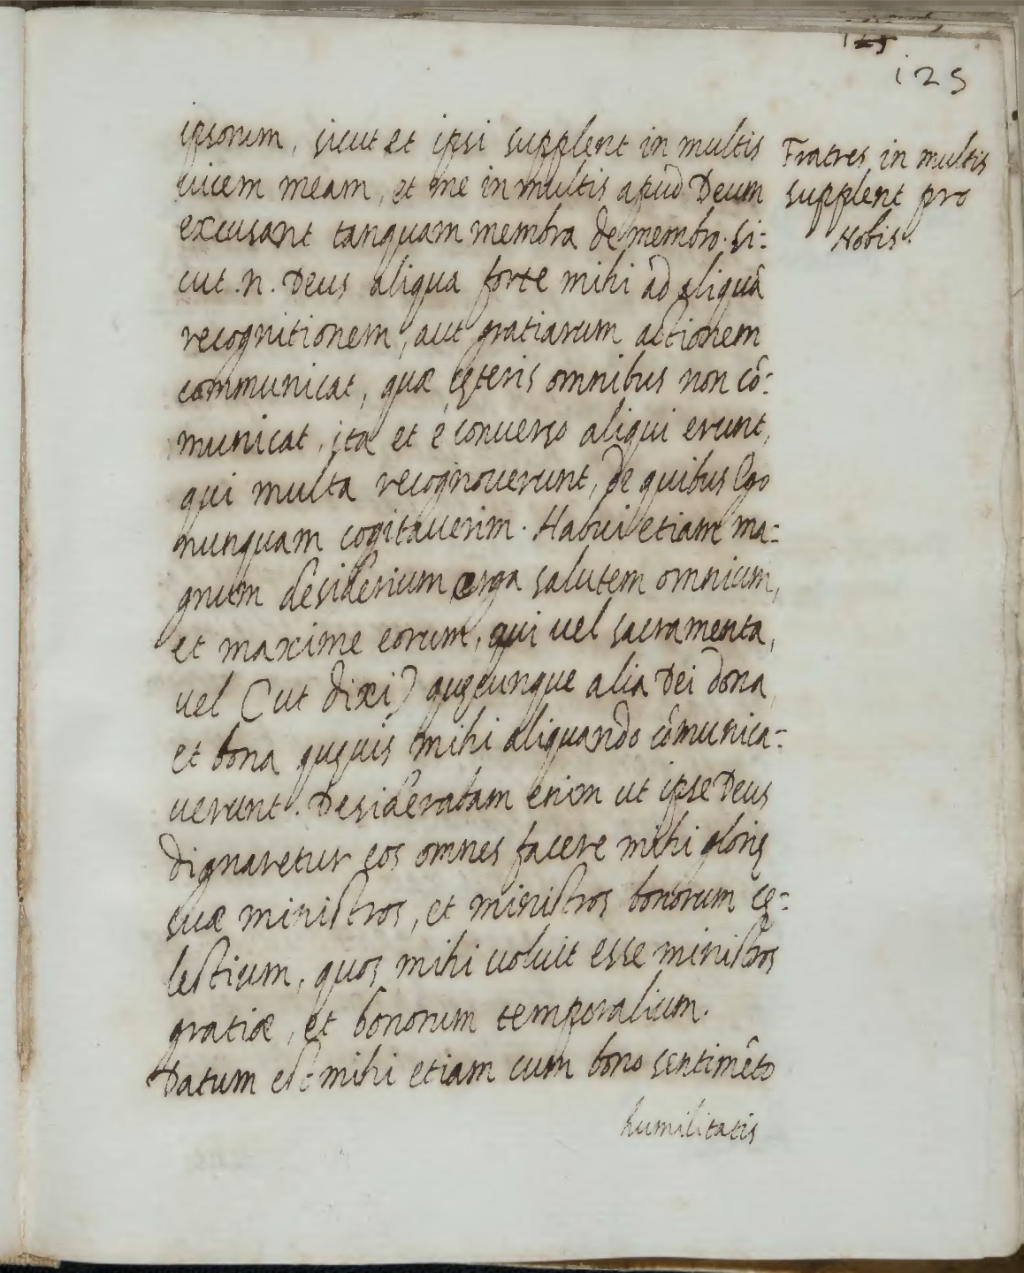 125
125
ipsorum, sicut et ipsi supplent in multis
uicem meam, et me in multis apud Deum
excusant tanquam membra de membro. si:
cut .n. Deus aliqua forte mihi ad aliquā
recognitionem, aut gratiarum actionem
communicat, quæ cęteris omnibus non cō:
municat, ita et e conuerso aliqui erunt,
qui multa recognouerunt, de quibus Ego
nunquam cogitauerim. Habui etiam ma:
gnum desiderium erga salutem omnium,
et maxime eorum, qui uel sacramenta,
uel (ut dixi) quęcunque alia Dei dona,
et bona quęuis mihi aliquando cōmunica:
uerunt. Desiderabam enim ut ipse Deus
dignaretur eos omnes facere mihi glorię
suæ ministros, et ministros bonorum cę:
lestium, quos mihi uoluit esse ministros
gratiæ, et bonorum temporalium.
Datum est mihi etiam cum bono sentimēto
humilitatis
Fratres in multis
supplent pro
Nobis.